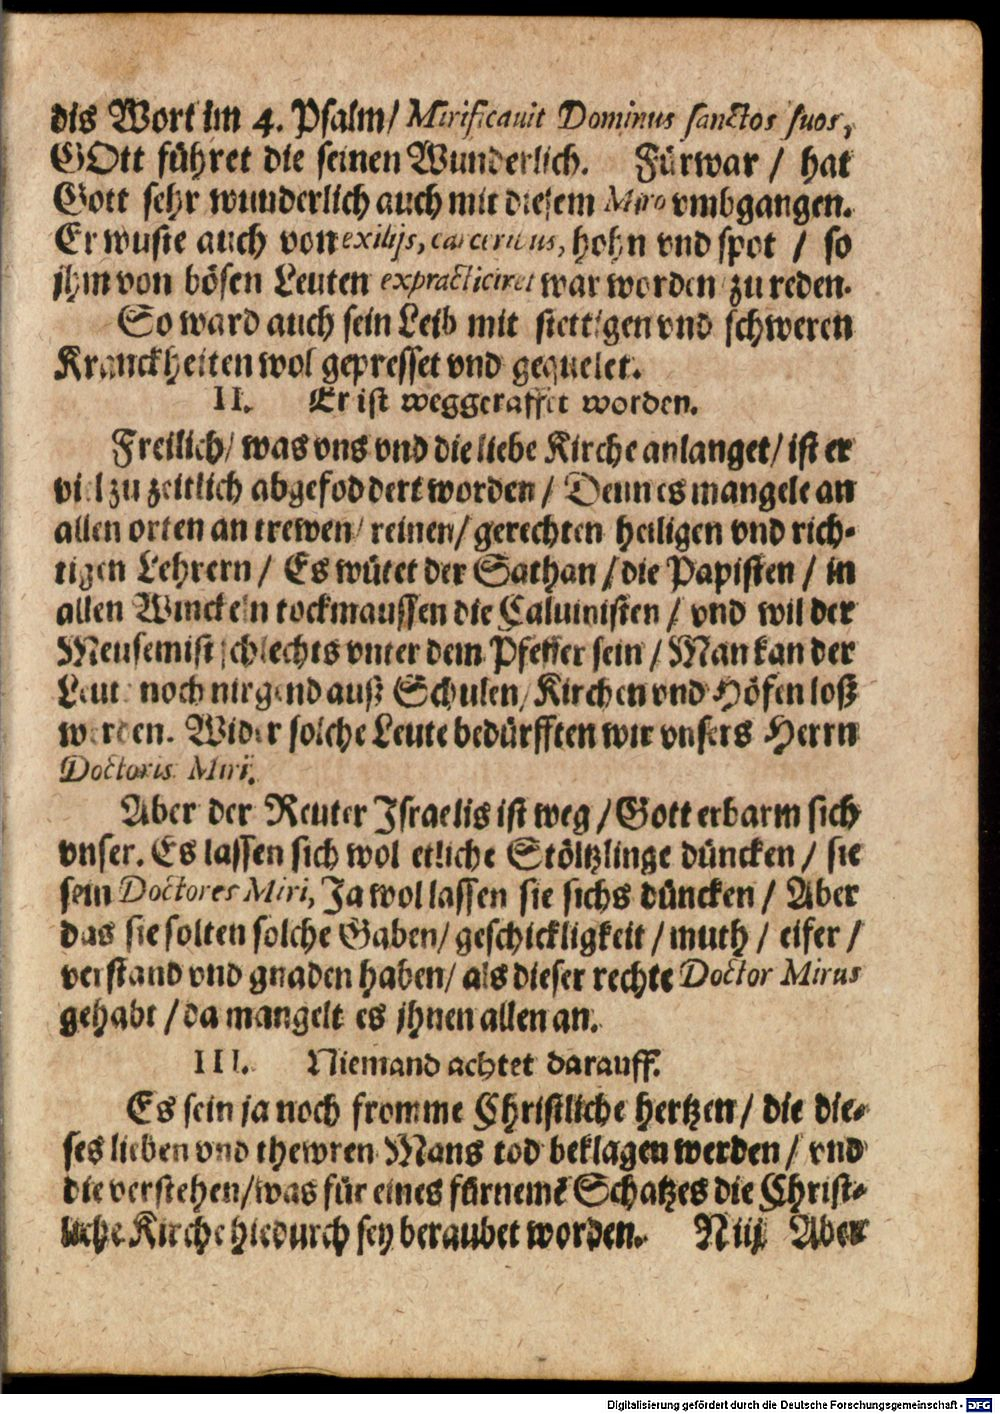 dis Wort im 4. Psalm/ Mirificauit Dominus sanctos suos,
GOtt führet die seinen Wunderlich. Fürwar / hat
Gott sehr wunderlich auch mit diesem Miro vmbgangen.
Er wuste auch von exilijs, carceribus, hohn vnd spot / so
jhm von bösen Leuten expracticiret war worden zu reden.
So ward auch sein Leib mit stettigen vnd schweren
Kranckheiten wol gepresset vnd gequelet.
II. Er ist weggeraffet worden.
Freilich/ was vns vnd die liebe Kirche anlanget/ ist er
viel zu zeitlich abgefoddert worden / Denn es mangele an
allen orten an trewen/ reinen/ gerechten heiligen vnd rich-
tigen Lehrern / Es wütet der Sathan / die Papisten / in
allen Winckeln tockmaussen die Caluinisten / vnd wil der
Meusemist schlechts vnter dem Pfeffer sein / Man kan der
Leut noch nirgend auß Schulen/ Kirchen vnd Höfen loß
werden. Wider solche Leute bedürfften wir vnsers Herrn
Doctoris Miri.
Aber der Reuter Israelis ist weg / Gott erbarm sich
vnser. Es lassen sich wol etliche Stöltzlinge düncken / sie
sein Doctores Miri, Ja wol lassen sie sichs düncken / Aber
das sie solten solche Gaben/ geschickligkeit / muth / eifer /
verstand vnd gnaden haben/ als dieser rechte Doctor Mirus
gehabt / da mangelt es jhnen allen an.
III. Niemand achtet darauff.
Es sein ja noch fromme Christliche hertzen/ die die-
ses lieben vnd thewren Mans tod beklagen werden / vnd
die verstehen/ was für eines fürneme Schatzes die Christ-
liche Kirche hiedurch sey beraubet worden. N iij Aber
Digitalisierung gefördert durch die Deutsche Forschungsgemeinschaft - DFG